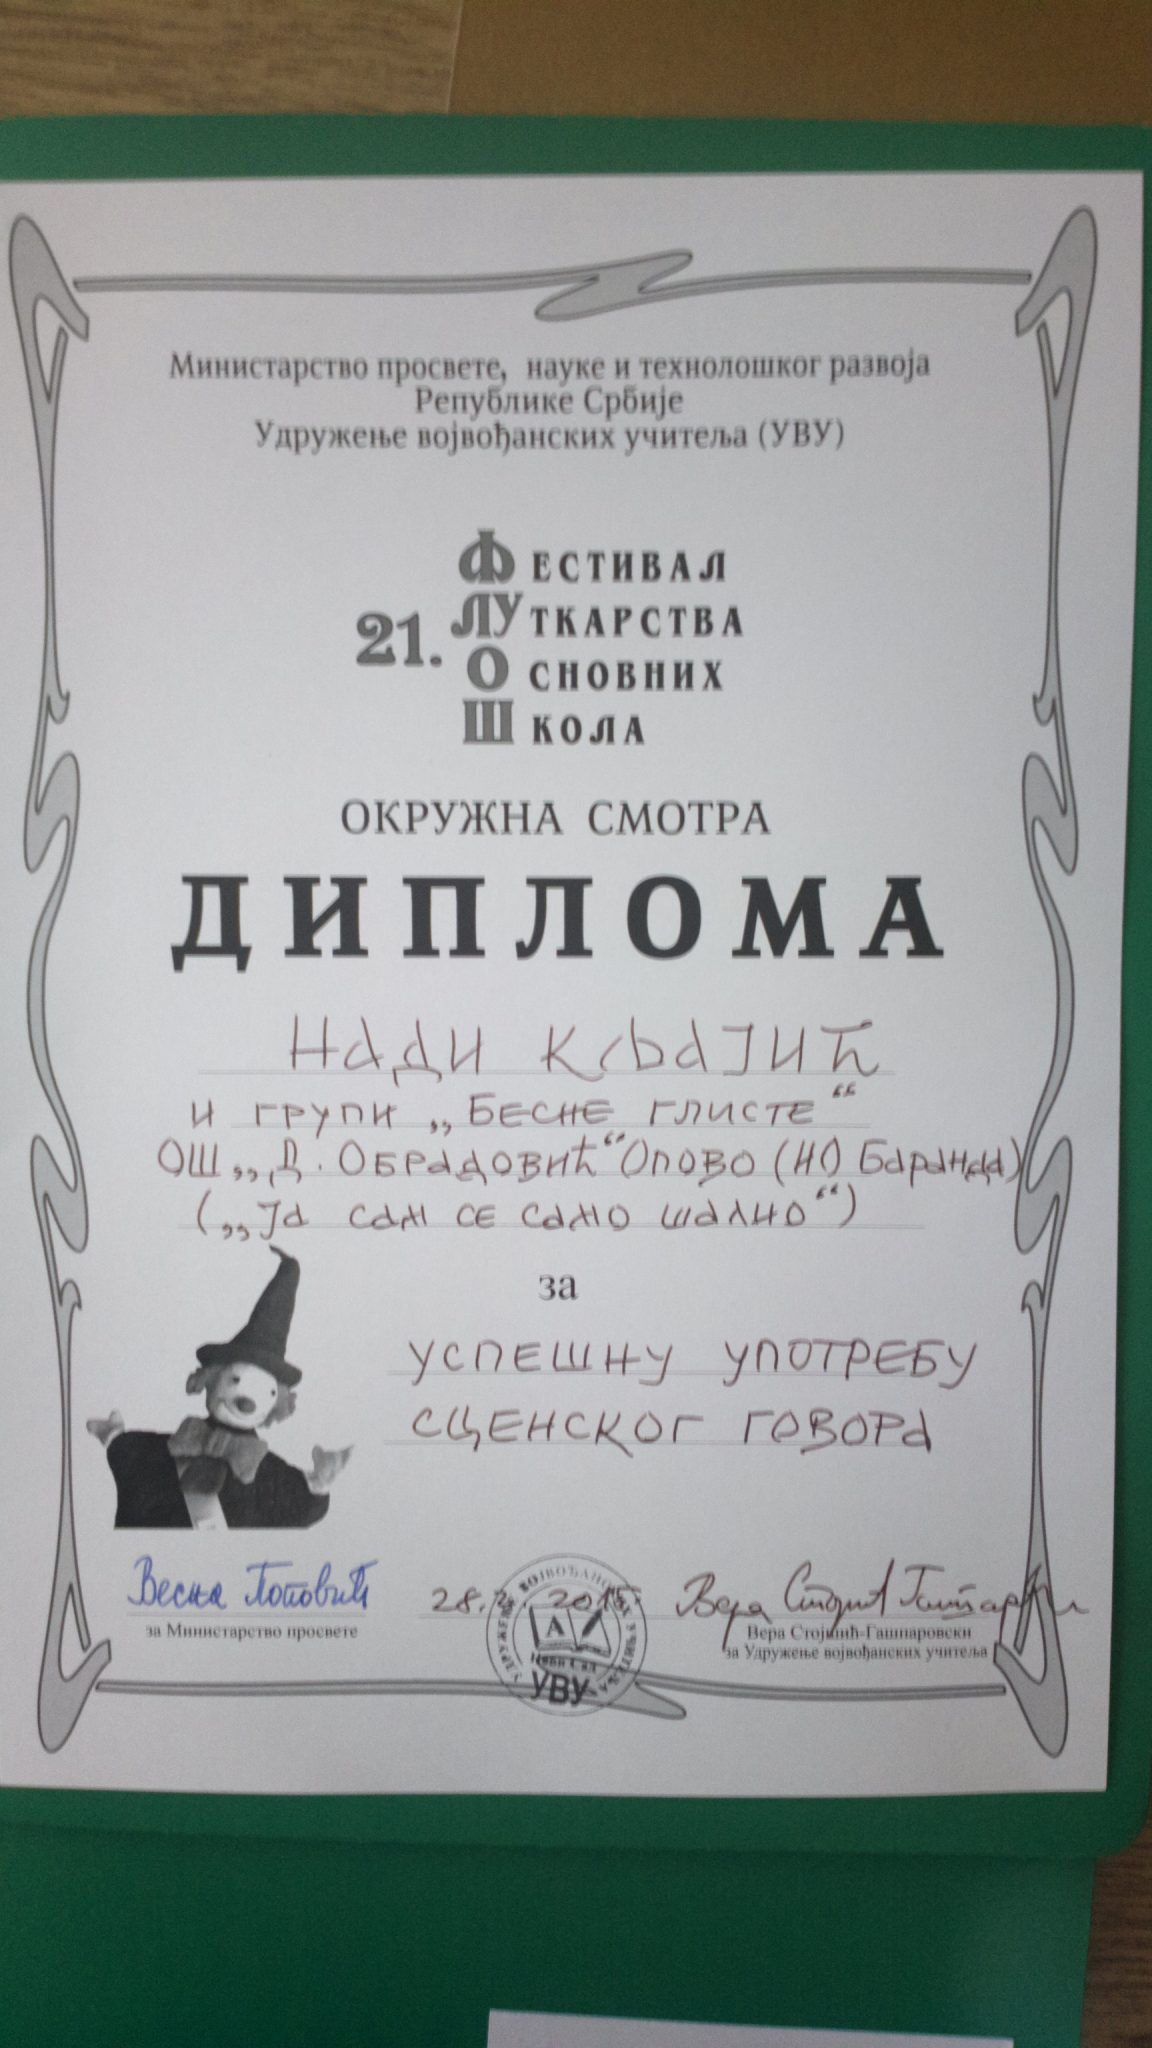 Министарство просвете, науке и технолошког развоја
Републике Србије
Удружење војвођанских учитеља (УВУ)
21.
ФЕСТИВАЛ
ЛУТКАРСТВА
ОСНОВНИХ
ШКОЛА
ОКРУЖНА СМОТРА
ДИПЛОМА
Нади Кљајић
и групи „Бесне глисте“
ОШ „Д. Обрадовић“ Опово (ИО Баранда)
(„Ја сам се само шалио“)
за
успешну употребу
сценског говора
Весна Поповић
за Министарство просвете
28. 2015.
Вера Стојшић-Гашпаровски
за Удружење војвођанских учитеља
Нови Сад
УВУ